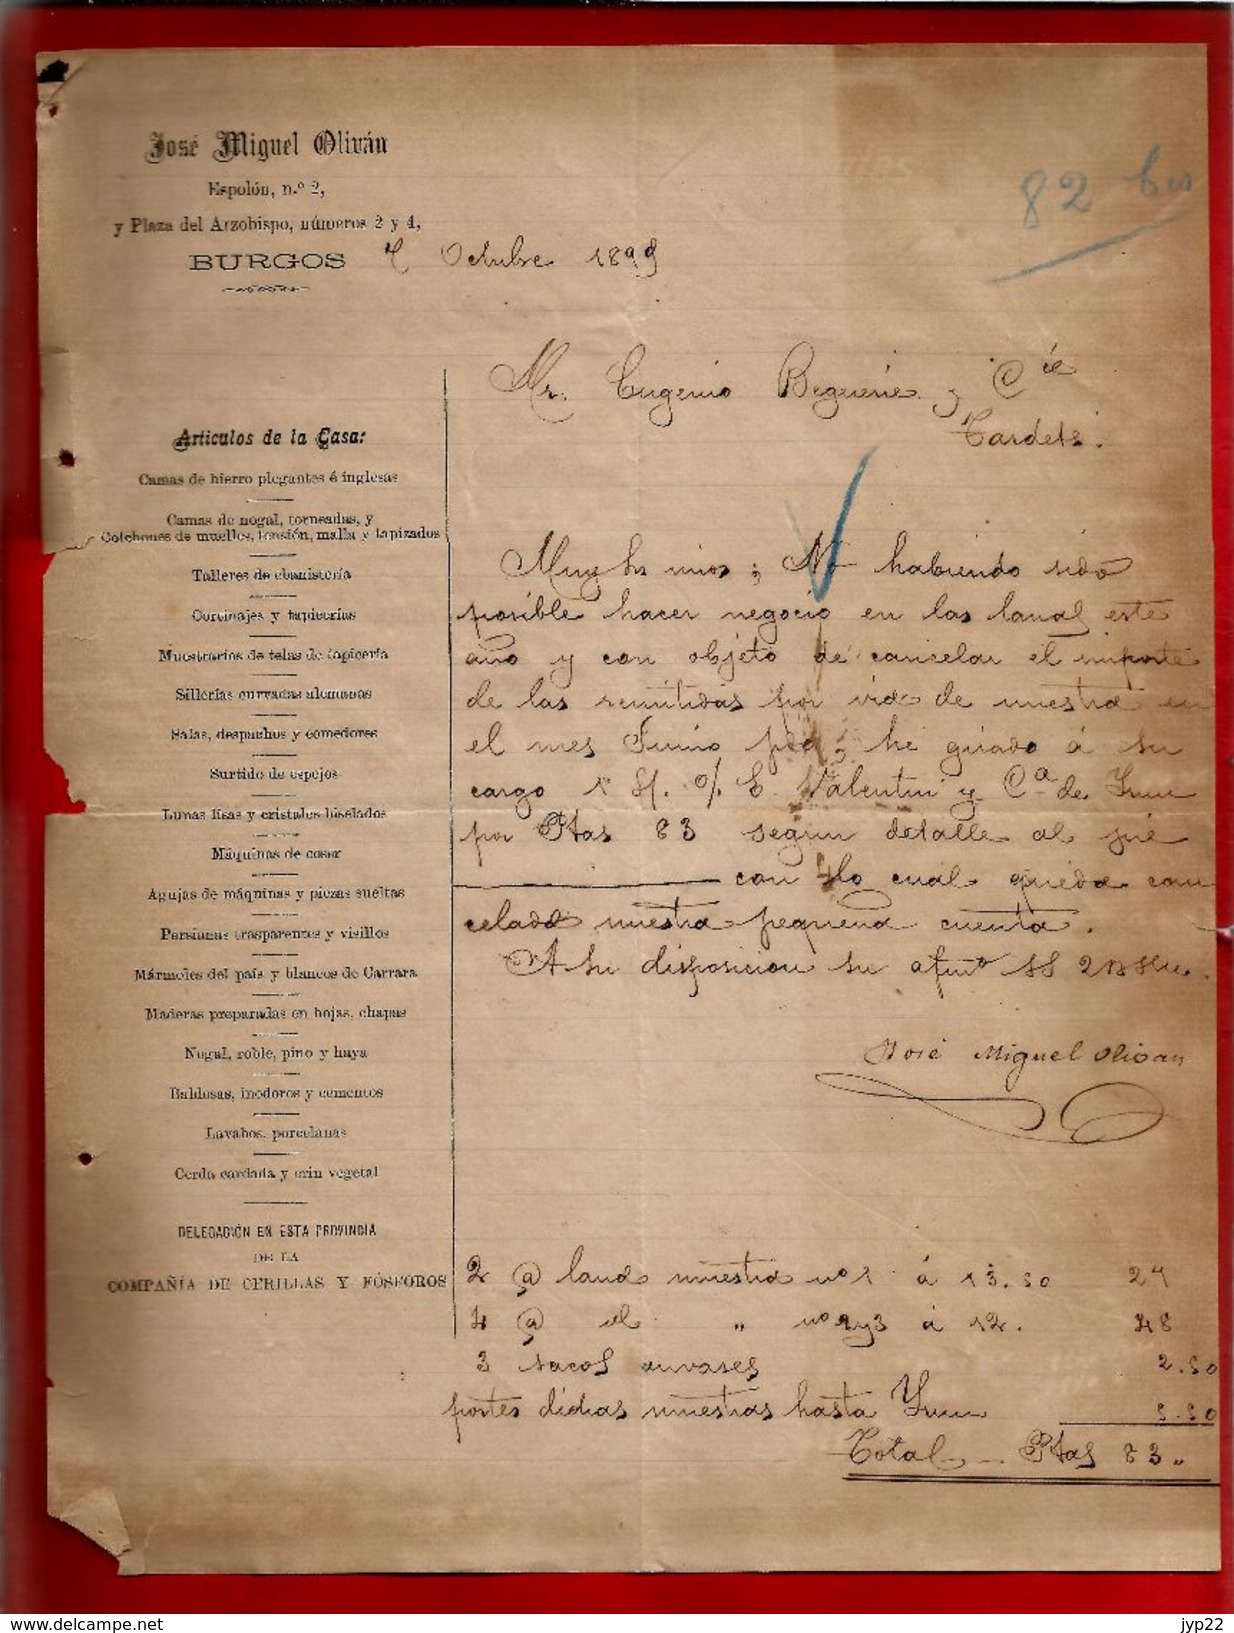 José Miguel Oliván
Espolón, n.º 2,
y Plaza del Arzobispo, números 2 y 4,
BURGOS 7 Octubre 1899
82 bis
Mr. Eugenio Beguerie y Cie
Tardets.
Artículos de la Casa:
Camas de hierro plegantes é inglesas
Camas de nogal, torneadas, y
Colchones de muelles, tensión, malla y tapizados
Talleres de ebanistería
Cortinajes y tapicerías
Muestrarios de telas de tapicería
Sillerías curvadas alemanas
Salas, despachos y comedores
Surtido de espejos
Lunas lisas y cristales biselados
Máquinas de coser
Agujas de máquinas y piezas sueltas
Persianas trasparentes y visillos
Mármoles del país y blancos de Carrara
Maderas preparadas en hojas, chapas
Nogal, roble, pino y haya
Baldosas, inodoros y cementos
Lavabos, porcelanas
Cerda cardada y crin vegetal
DELEGACIÓN EN ESTA PROVINCIA
DE LA
COMPAÑÍA DE CERILLAS Y FÓSFOROS
Muy Srs mios; No habiendo sido
posible hacer negocio en las lanas este
año y con objeto de cancelar el importe
de las remitidas por via de muestra en
el mes Junio ppdo; he girado á su
cargo o/ E. Valentin y Ca de Irun
por Ptas 83 segun detalle al pié
con lo cual queda can
celada nuestra pequeña cuenta.
A su disposicion su afmo SS
José Miguel Olivan
2 @ lana muestra nº 1 á 13.50 27
4 @ id " nº 2 y 3 á 12. 48
3 sacos envases 2.50
portes dichas muestras hasta Irun 5.50
Total Ptas 83 "
jyp22